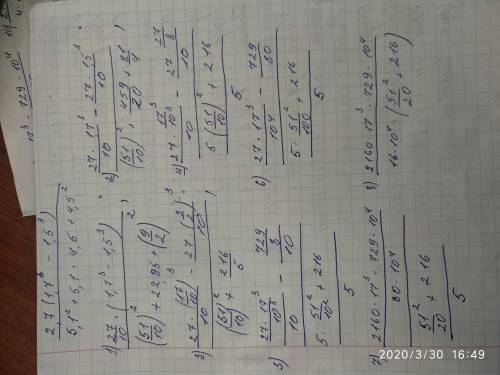 17³ - 729 · 10⁴
27 (1,7³ - 1,5³)
5,1² + 5,1 · 4,5 + 4,5²
1) 27/10 · (1,7³ - 1,5³)
(51/10)² + 22,95 + (9/2)²
2) 27 · 17³/10 - 27 · 1,5³/10
(51/10)² + 459/20 + 81/4
3) 27 · (17/10)³ - 27 · (3/2)³
10
(51/10)² + 216/5
4) 27 · 17³/10³ - 27 · 27/8
10 10
5 · (51/10)² + 216
5
5) 27 · 17³/10³ - 729/8
10 10
5 · 51²/10² + 216
5
6) 27 · 17³/10⁴ - 729/80
5 · 51²/100 + 216
5
7) 2160 · 17³ - 729 · 10⁴
80 · 10⁴
51²/20 + 216
5
8) 2160 · 17³ · 729 · 10⁴
16 · 10⁴ · (51²/20 + 216)
2020/3/30 16:49